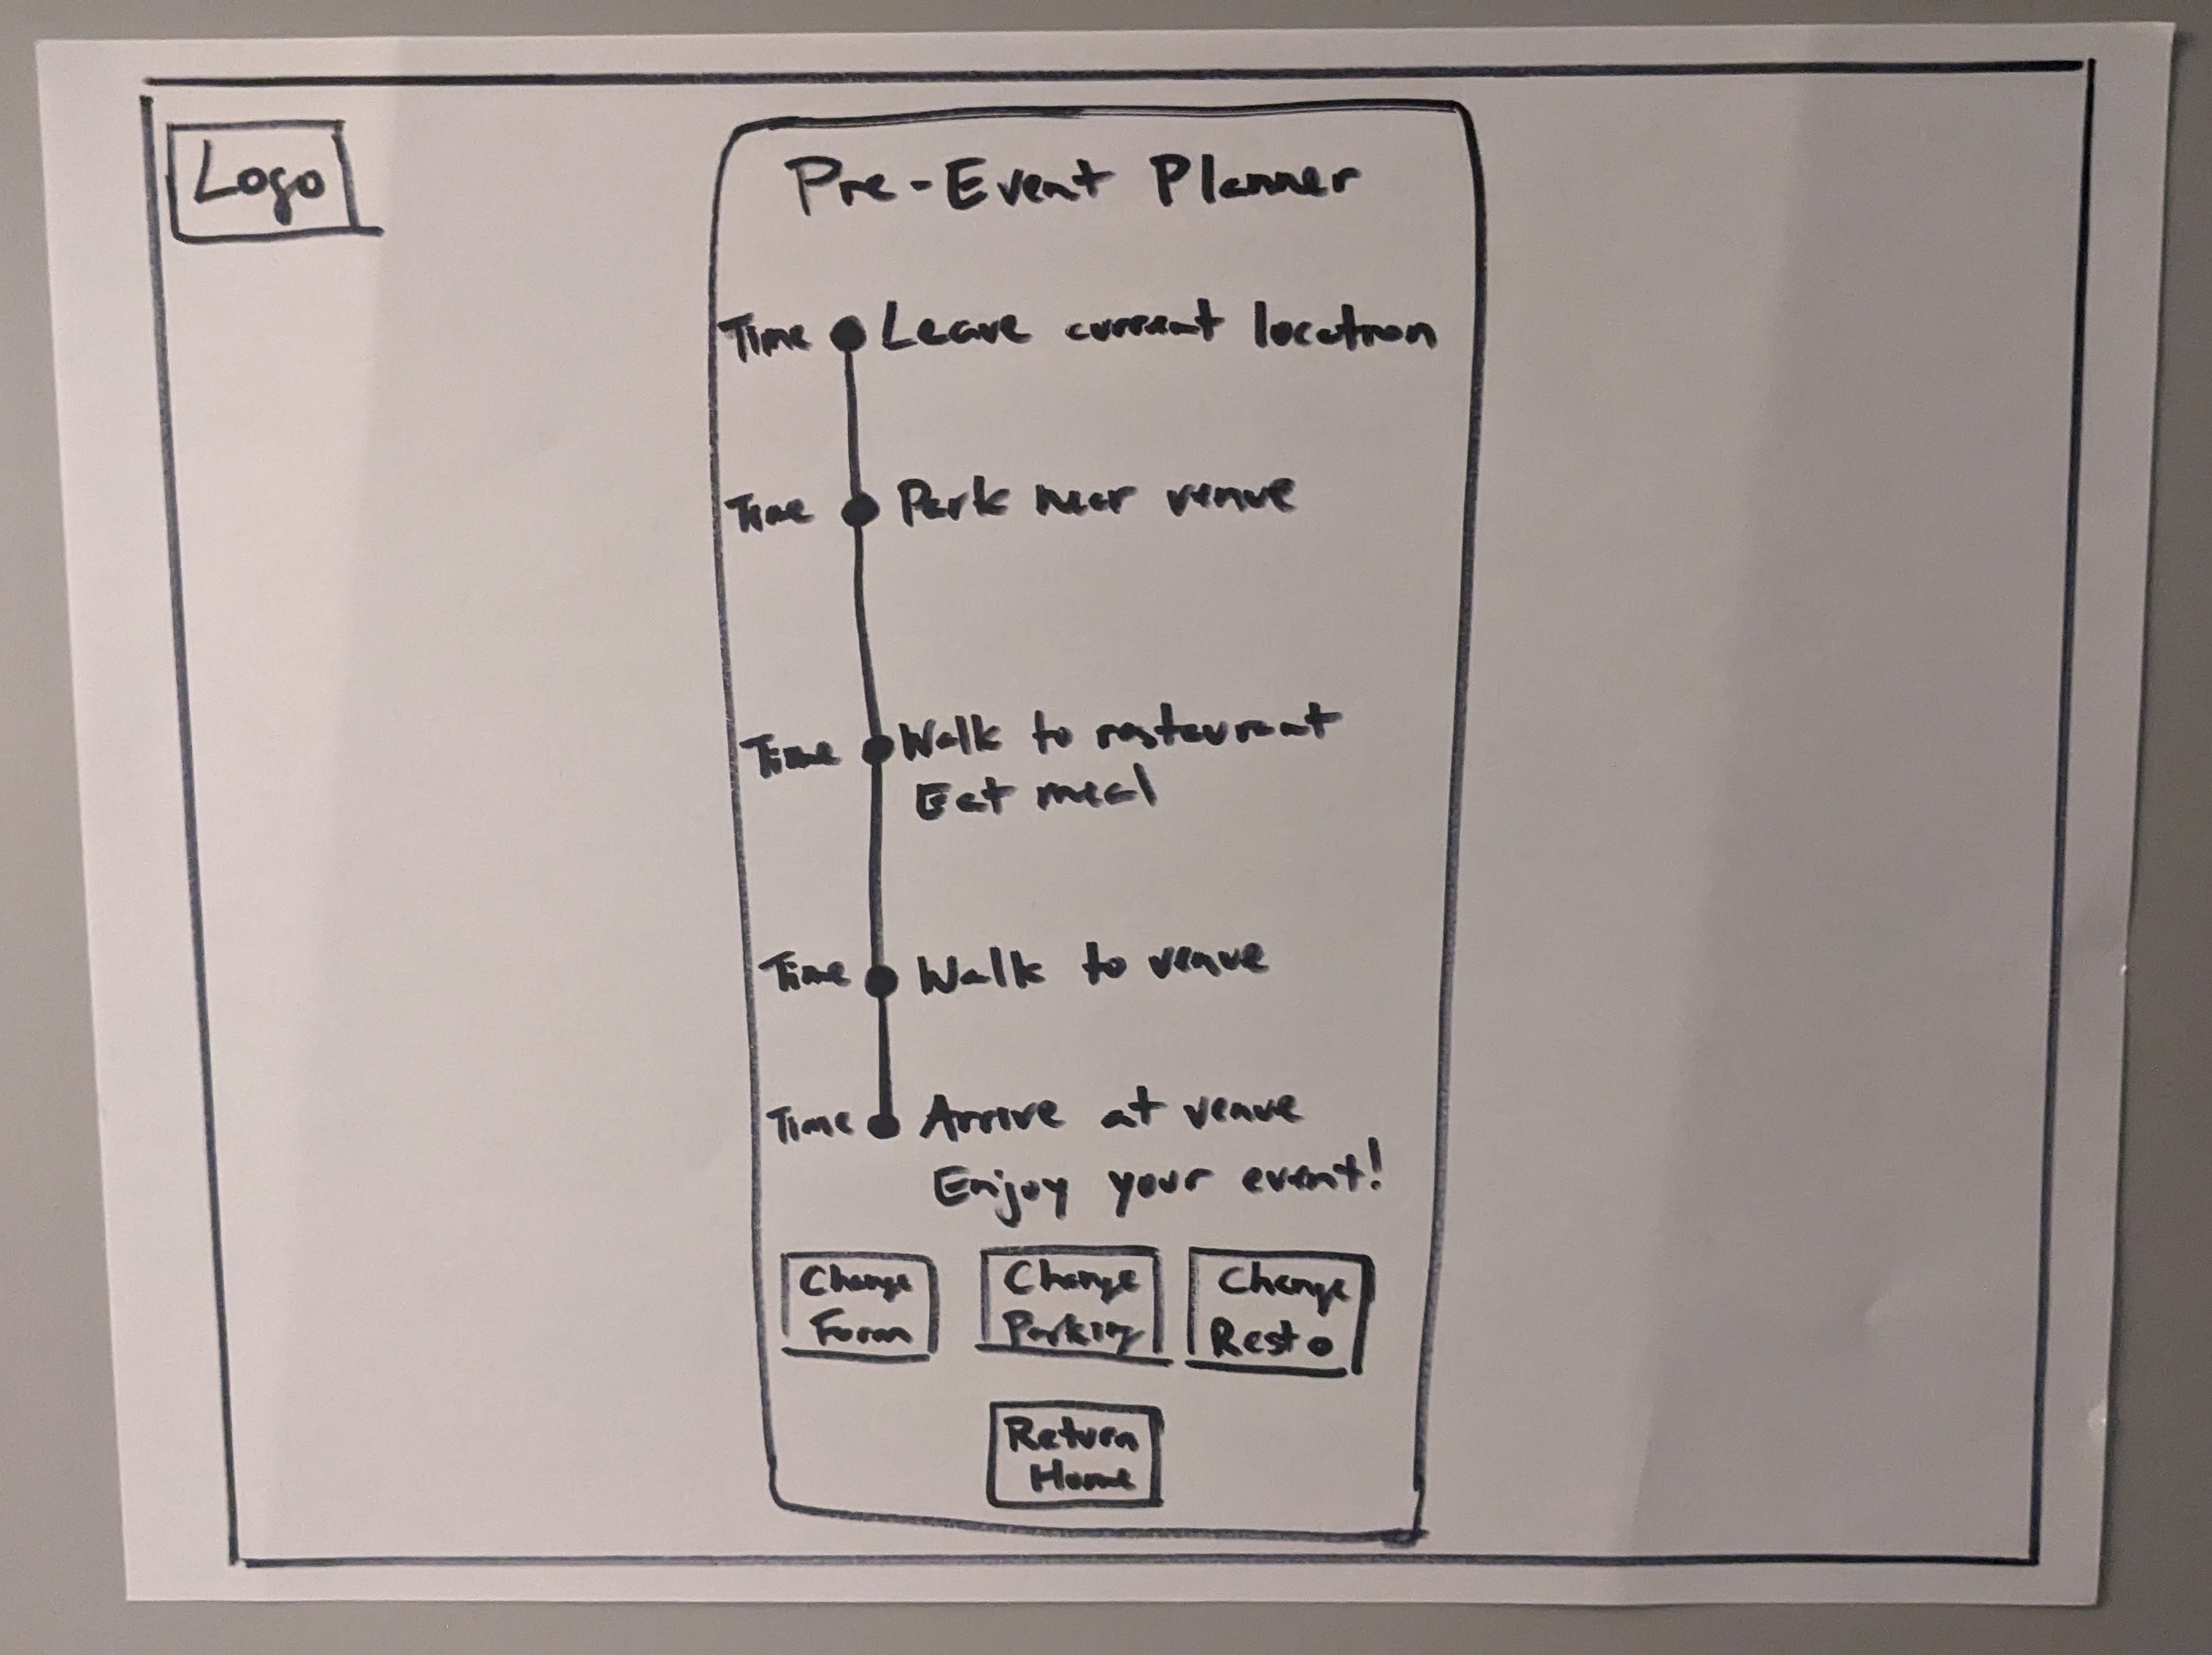 Logo
Pre-Event Planner
Time Leave current location
Time Park near venue
Time Walk to restaurant
Eat meal
Time Walk to venue
Time Arrive at venue
Enjoy your event!
Change
Form
Change
Parking
Change
Resto
Return
Home